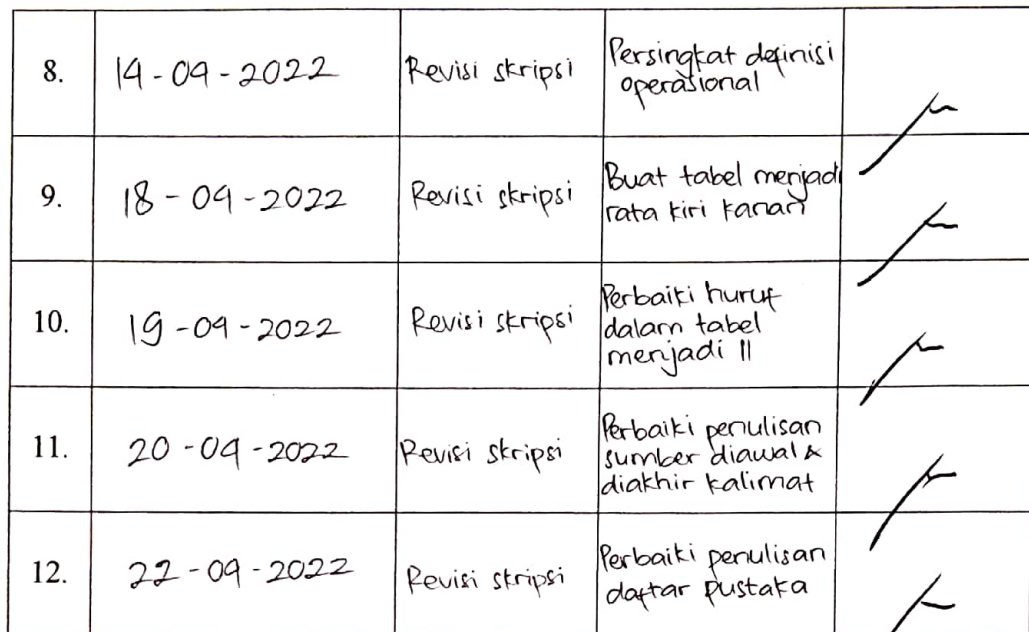 8. 14-09-2022 Revisi skripsi Persingkat definisi
operasional
9. 18-09-2022 Revisi skripsi Buat tabel menjadi
rata kiri kanan
10. 19-09-2022 Revisi skripsi Perbaiki huruf
dalam tabel
menjadi 11
11. 20-09-2022 Revisi skripsi Perbaiki penulisan
sumber diawal &
diakhir kalimat
12. 22-09-2022 Revisi skripsi Perbaiki penulisan
daftar pustaka